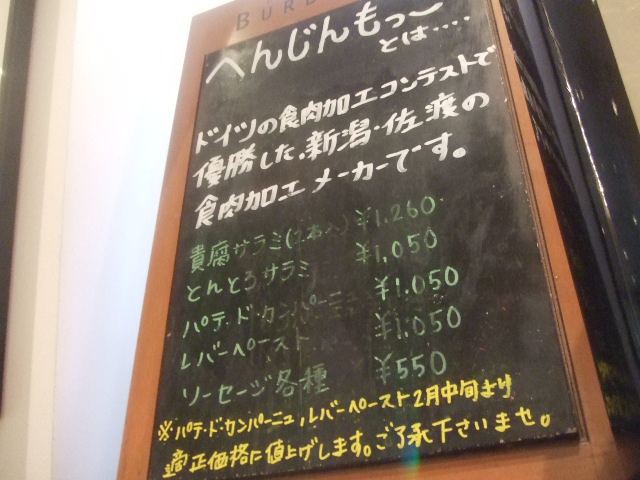 へんじんもっこ
とは‥‥
ドイツの食肉加工コンテストで
優勝した、新潟・佐渡の
食肉加工メーカーです。
貴腐サラミ(2本入) ¥1,260
とんとろサラミ ¥1,050
パテ・ド・カンパーニュ ¥1,050
レバーペースト ¥1,050
ソーセージ各種 ¥550
※パテ・ド・カンパーニュ、レバーペースト2月中旬より
適正価格に値上げします。ご了承下さいませ。